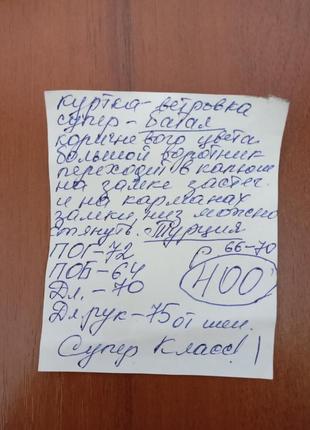 куртка-ветровка
супер-батал
коричневого цвета
большой воротник
переходит в капюш
на замке застег.
и на карманах
замки, низ можно
стянуть. Турция
ПОГ-72 Р 66-70
ПОБ-64 400
Дл.-70
Дл.рук-75 от шеи.
Супер Класс!